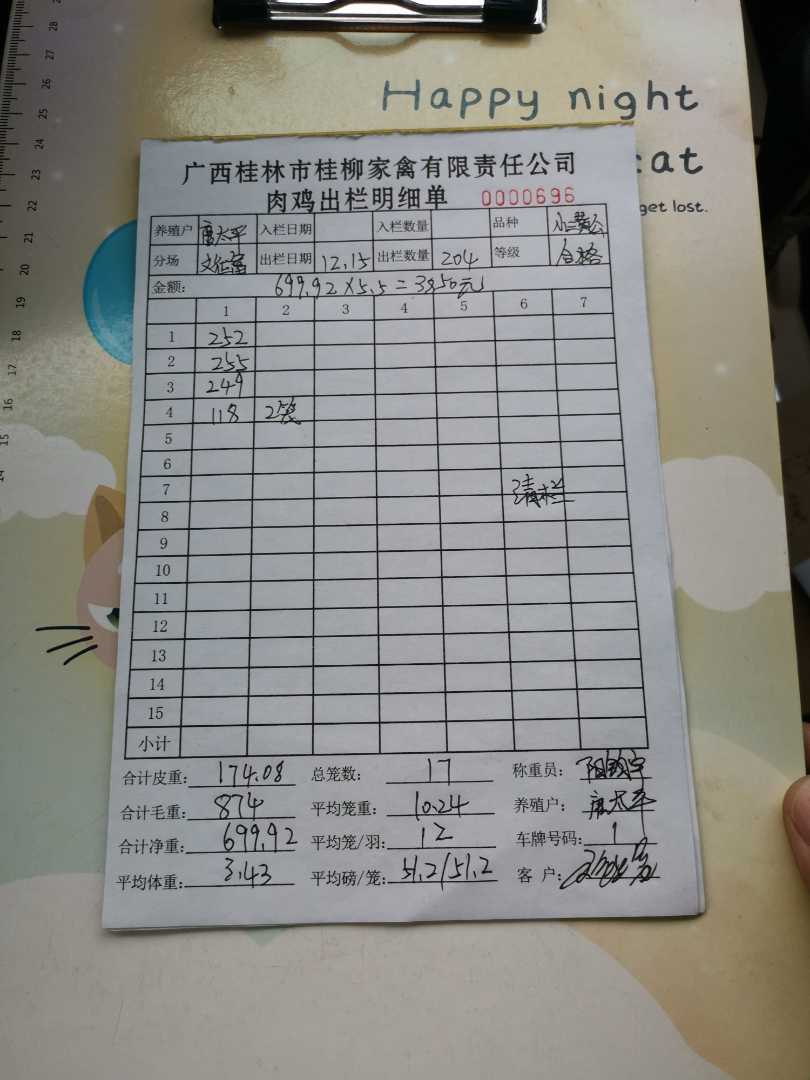 Happy night
cat
get lost.
广西桂林市桂柳家禽有限责任公司
肉鸡出栏明细单 0000696
养殖户 唐太平 入栏日期 入栏数量 品种 小三黄公
分场 出栏日期 12.15 出栏数量 204 等级 合格
金额: 699.92×5.5=3850元
1 2 3 4 5 6 7
1 252
2 255
3 249
4 118 2袋
5
6
7 清栏
8
9
10
11
12
13
14
15
小计
合计皮重: 174.08 总笼数: 17 称重员:
合计毛重: 874 平均笼重: 10.24 养殖户: 唐太平
合计净重: 699.92 平均笼/羽: 12 车牌号码: 1
平均体重: 3.43 平均磅/笼: 51.2/51.2 客 户:
28
27
26
25
24
23
22
21
20
19
18
17
16
15
14